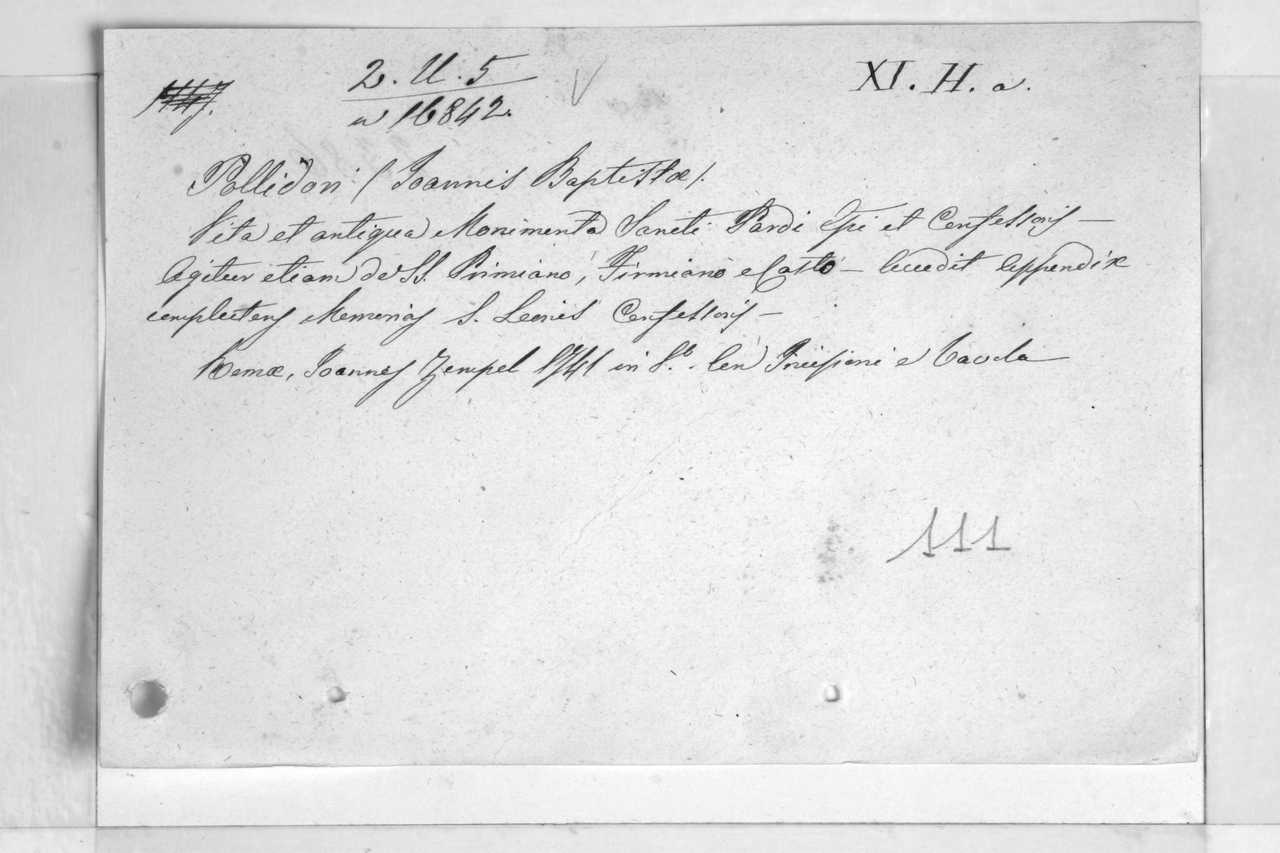 2. U. 5
n 16842.
XI. H. a.
Pollidori (Joannis Baptistæ).
Vita et antiqua Monimenta Sancti Pardi Epi et Confessoris —
Agitur etiam de SS. Primiano, Firmiano e Casto — Accedit Appendix
complectens Memorias S. Leonis Confessoris —
Romæ, Joannes Zempel 1741 in 8.º con Incisioni e Tavola —
111